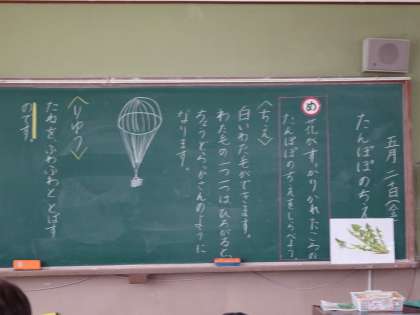 五月二十日(金)
たんぽぽのちえ
め
花がすっかりかれたころの
たんぽぽのちえをしらべよう。
〈ちえ〉
白いわた毛ができます。
わた毛の一つ一つはひろがると、
ちょうどらっかさんのように
なります。
〈りゆう〉
たねをふわふわととばす
のです。